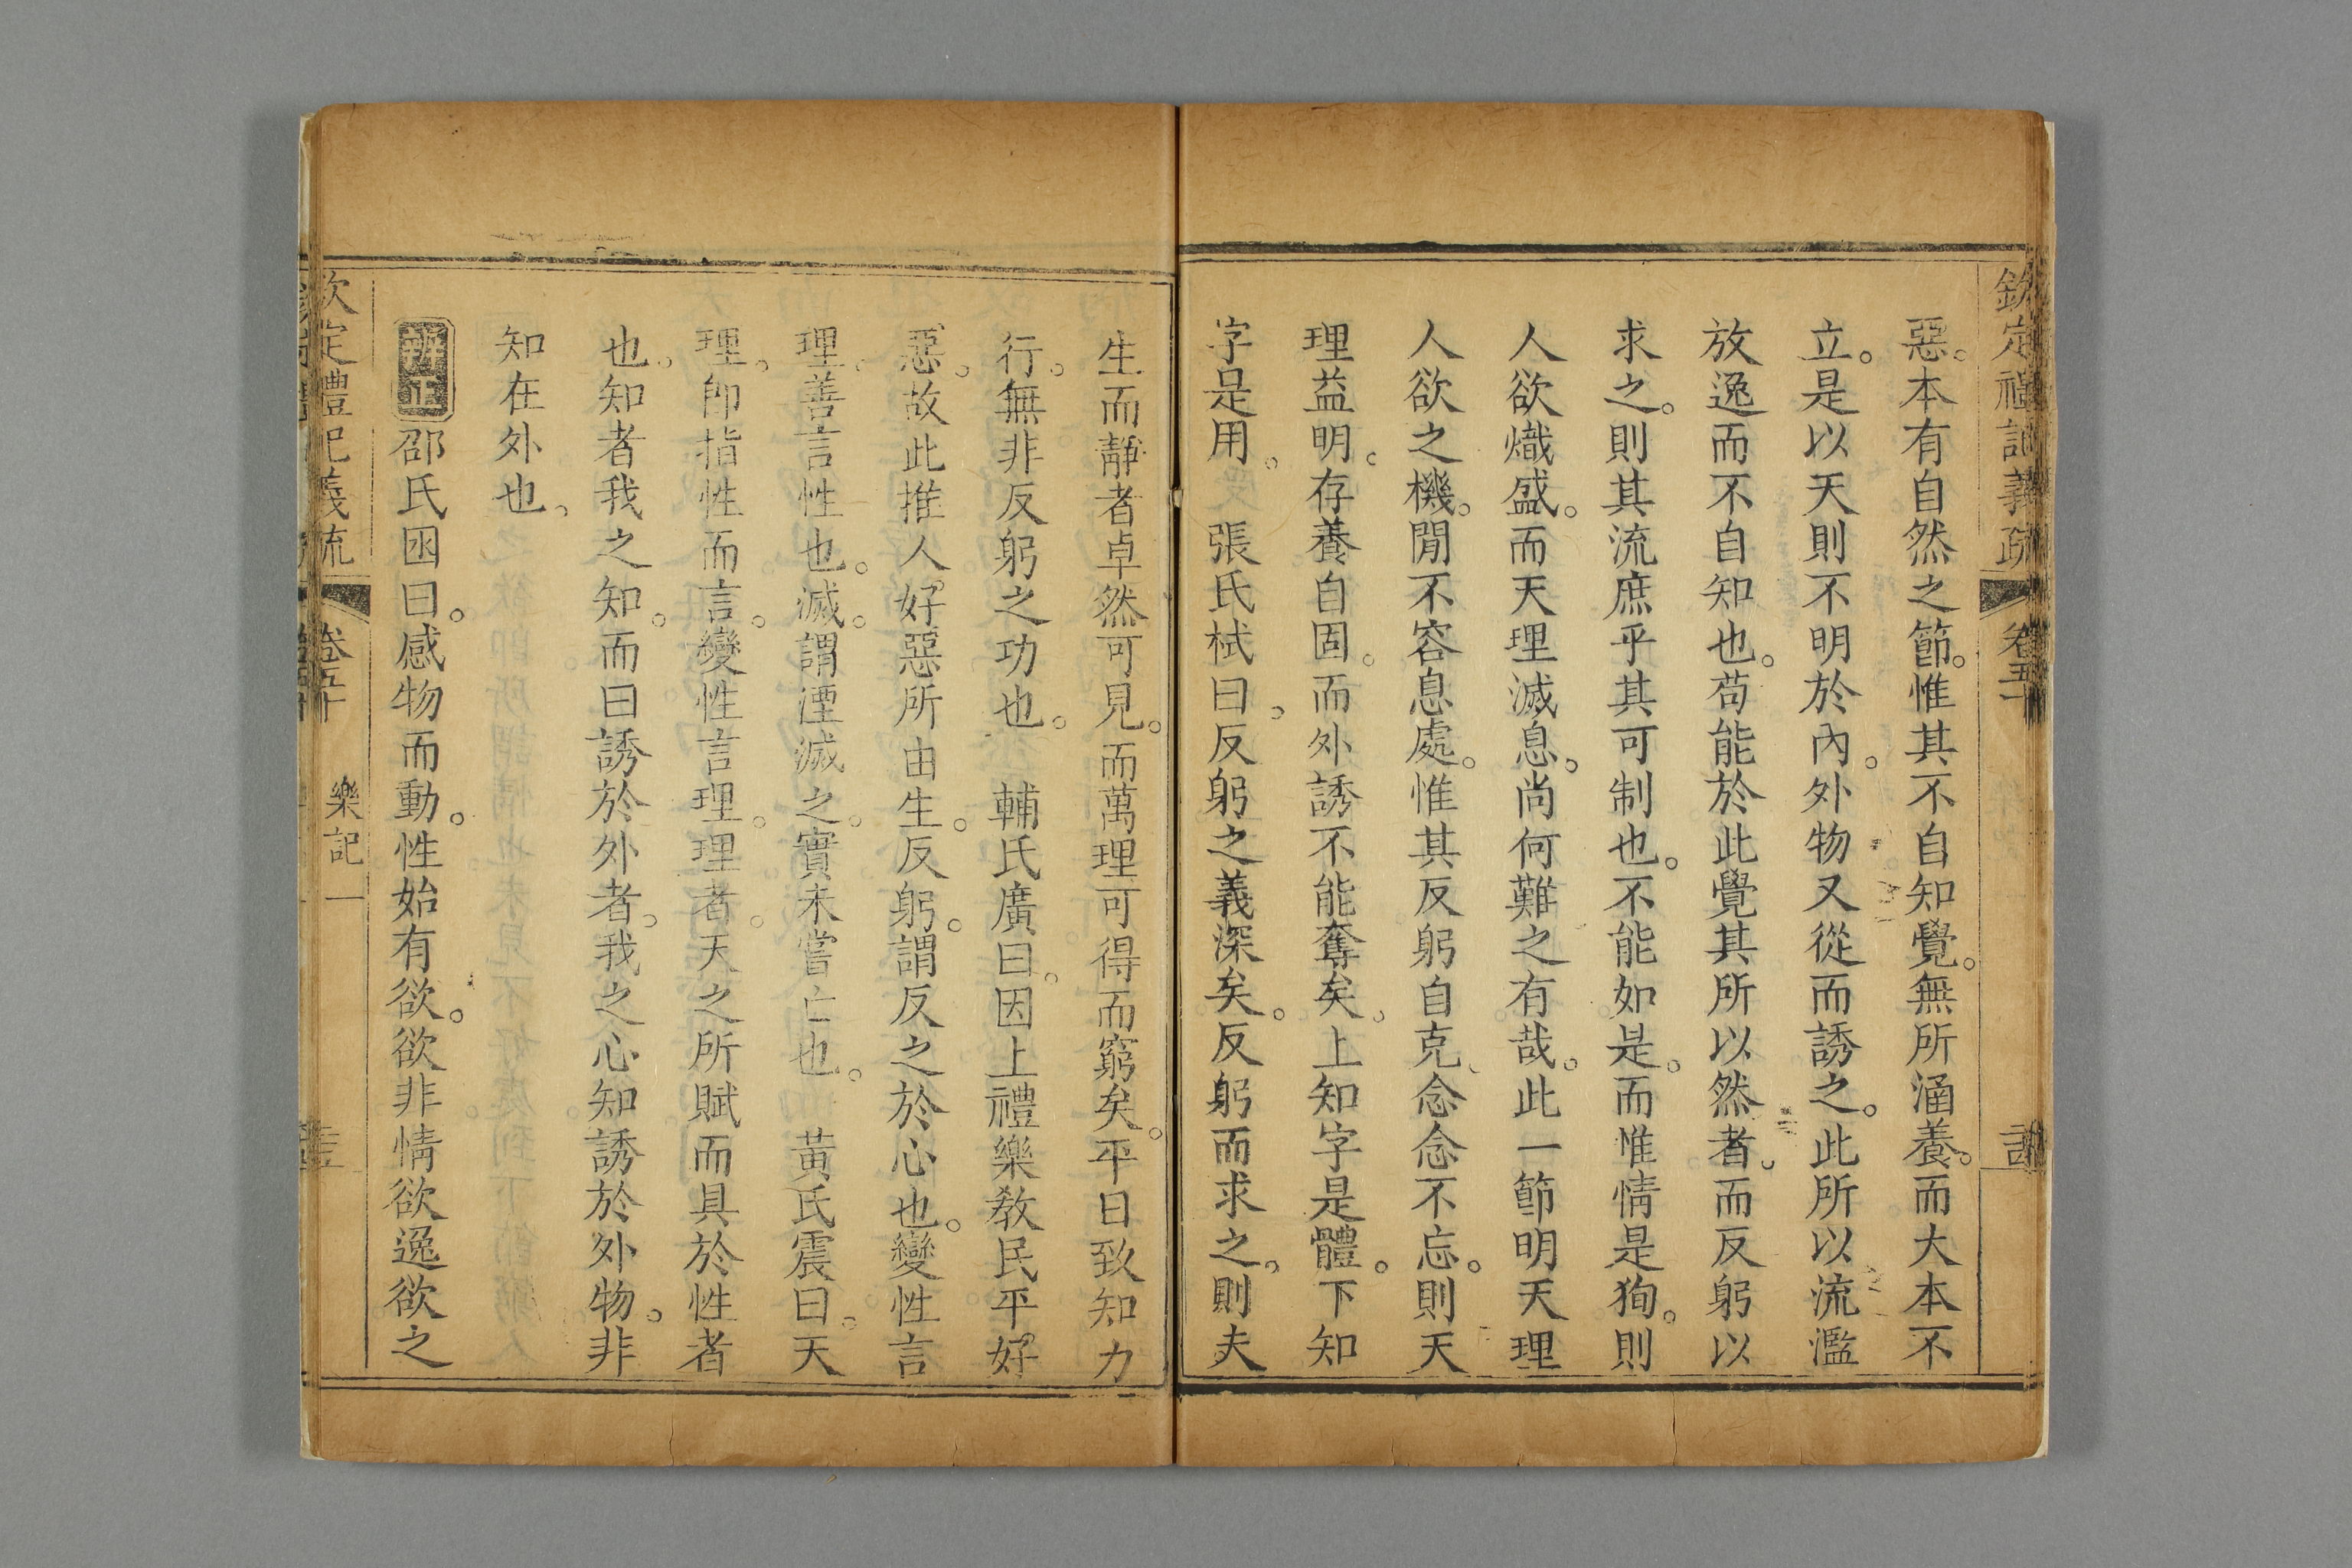 欽定禮記義疏 卷五十
惡。本有自然之節。惟其不自知覺。無所涵養。而大本不
立。是以天則不明於內。外物又從而誘之。此所以流濫
放逸而不自知也。苟能於此覺其所以然者。而反躬以
求之。則其流庶乎其可制也。不能如是。而惟情是狥。則
人欲熾盛。而天理滅息。尚何難之有哉。此一節明天理
人欲之機。閒不容息處。惟其反躬自克、念念不忘。則天
理益明。存養自固。而外誘不能奪矣。上知字是體。下知
字是用。 張氏栻曰。反躬之義深矣。反躬而求之。則夫
生而靜者卓然可見。而萬理可得而窮矣。平日致知力
行。無非反躬之功也。 輔氏廣曰。因上禮樂教民平好
惡。故此推人好惡所由生。反躬。謂反之於心也。變性言
理。善言性也。滅。謂湮滅之。實未嘗亡也。 黃氏震曰。天
理。卽指性而言。變性言理。理者。天之所賦而具於性者
也。知者我之知。而曰誘於外者。我之心知誘於外物。非
知在外也。
辨正 邵氏囦曰。感物而動。性始有欲。欲非情欲逸欲之
欽定禮記義疏 卷五十 樂記一